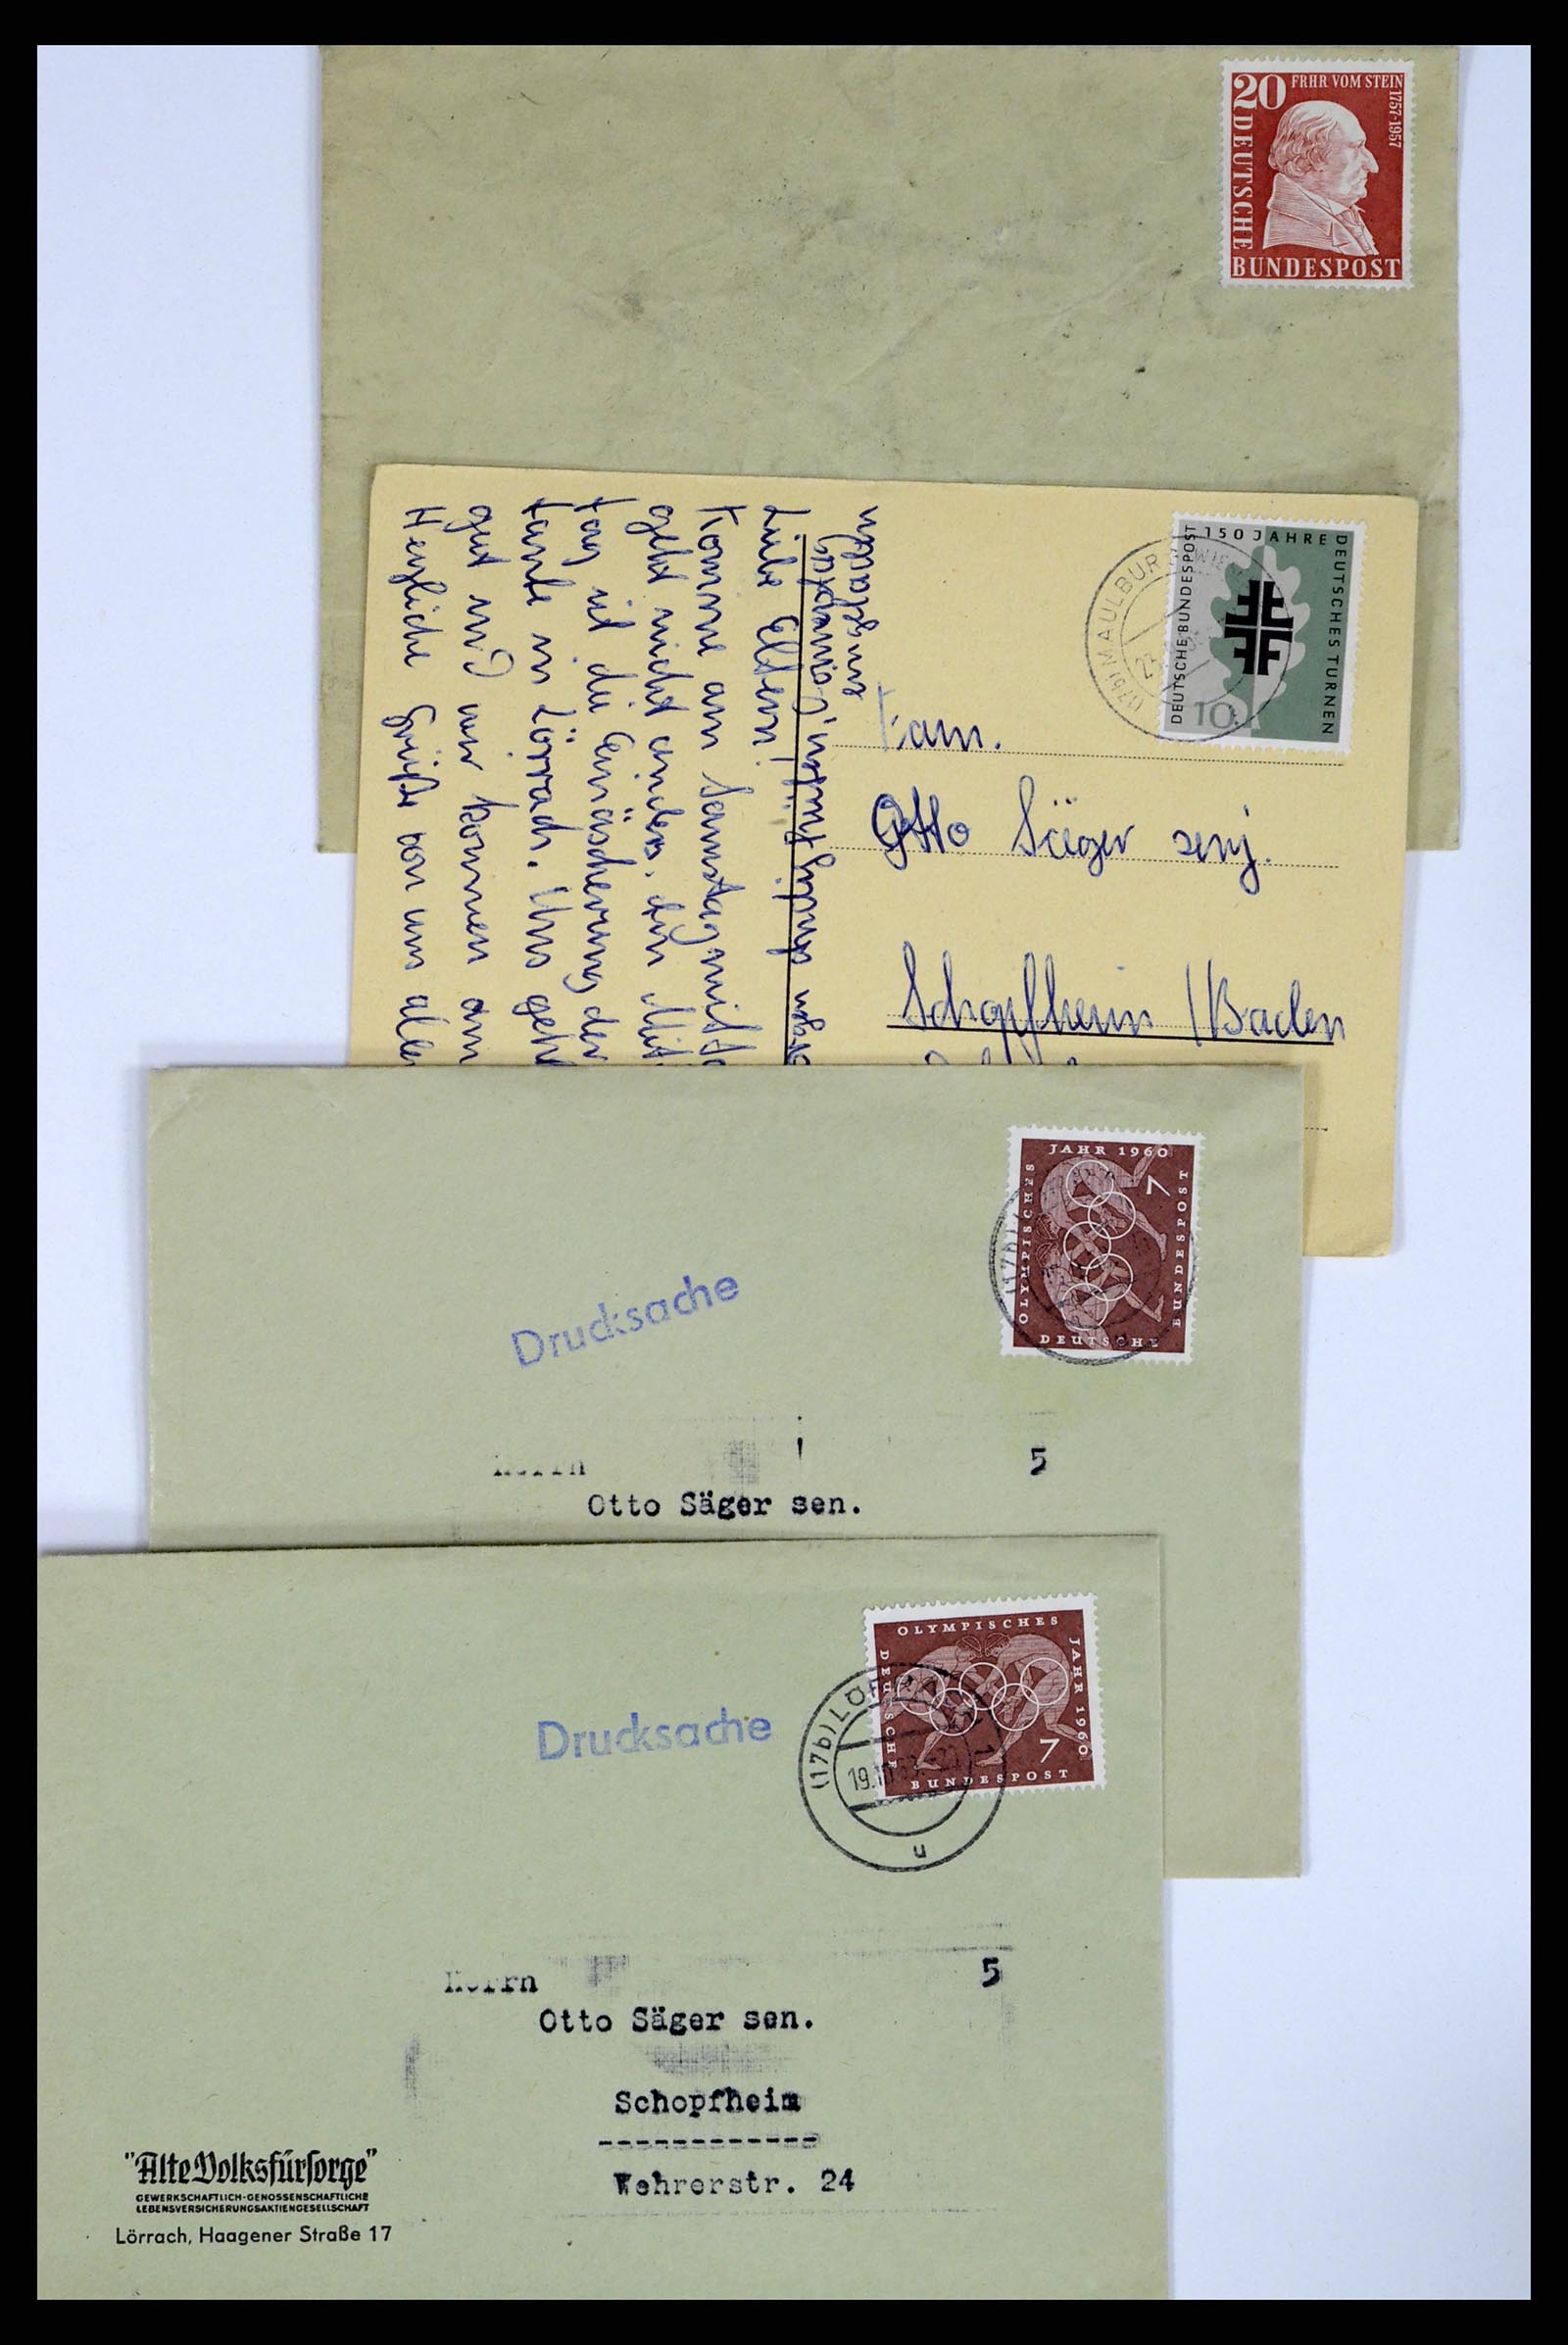 20 FRHR VOM STEIN
1757-1957
DEUTSCHE
BUNDESPOST
150 JAHRE
DEUTSCHES TURNEN
DEUTSCHE BUNDESPOST
10
(17b) MAULBURG
23.
Liebe Eltern!
Komme am Samstag mit
geht nicht anders, den
Tag ist die Einäscherung der
Tante in Lörrach. Uns geht
gut und wir kommen am
Herzliche Grüße von uns allen
Fam.
Otto Säger senj.
Schopfheim / Baden
JAHR 1960
OLYMPISCHES
7
BUNDESPOST
DEUTSCHE
(17b)
Drucksache
Herrn
5
Otto Säger sen.
OLYMPISCHES
JAHR 1960
DEUTSCHE
7
BUNDESPOST
(17b) LÖRRACH 1
19.
u
Drucksache
Herrn
5
Otto Säger sen.
Schopfheim
------------
Wehrerstr. 24
"Alte Volksfürsorge"
GEWERKSCHAFTLICH-GENOSSENSCHAFTLICHE
LEBENSVERSICHERUNGSAKTIENGESELLSCHAFT
Lörrach, Haagener Straße 17